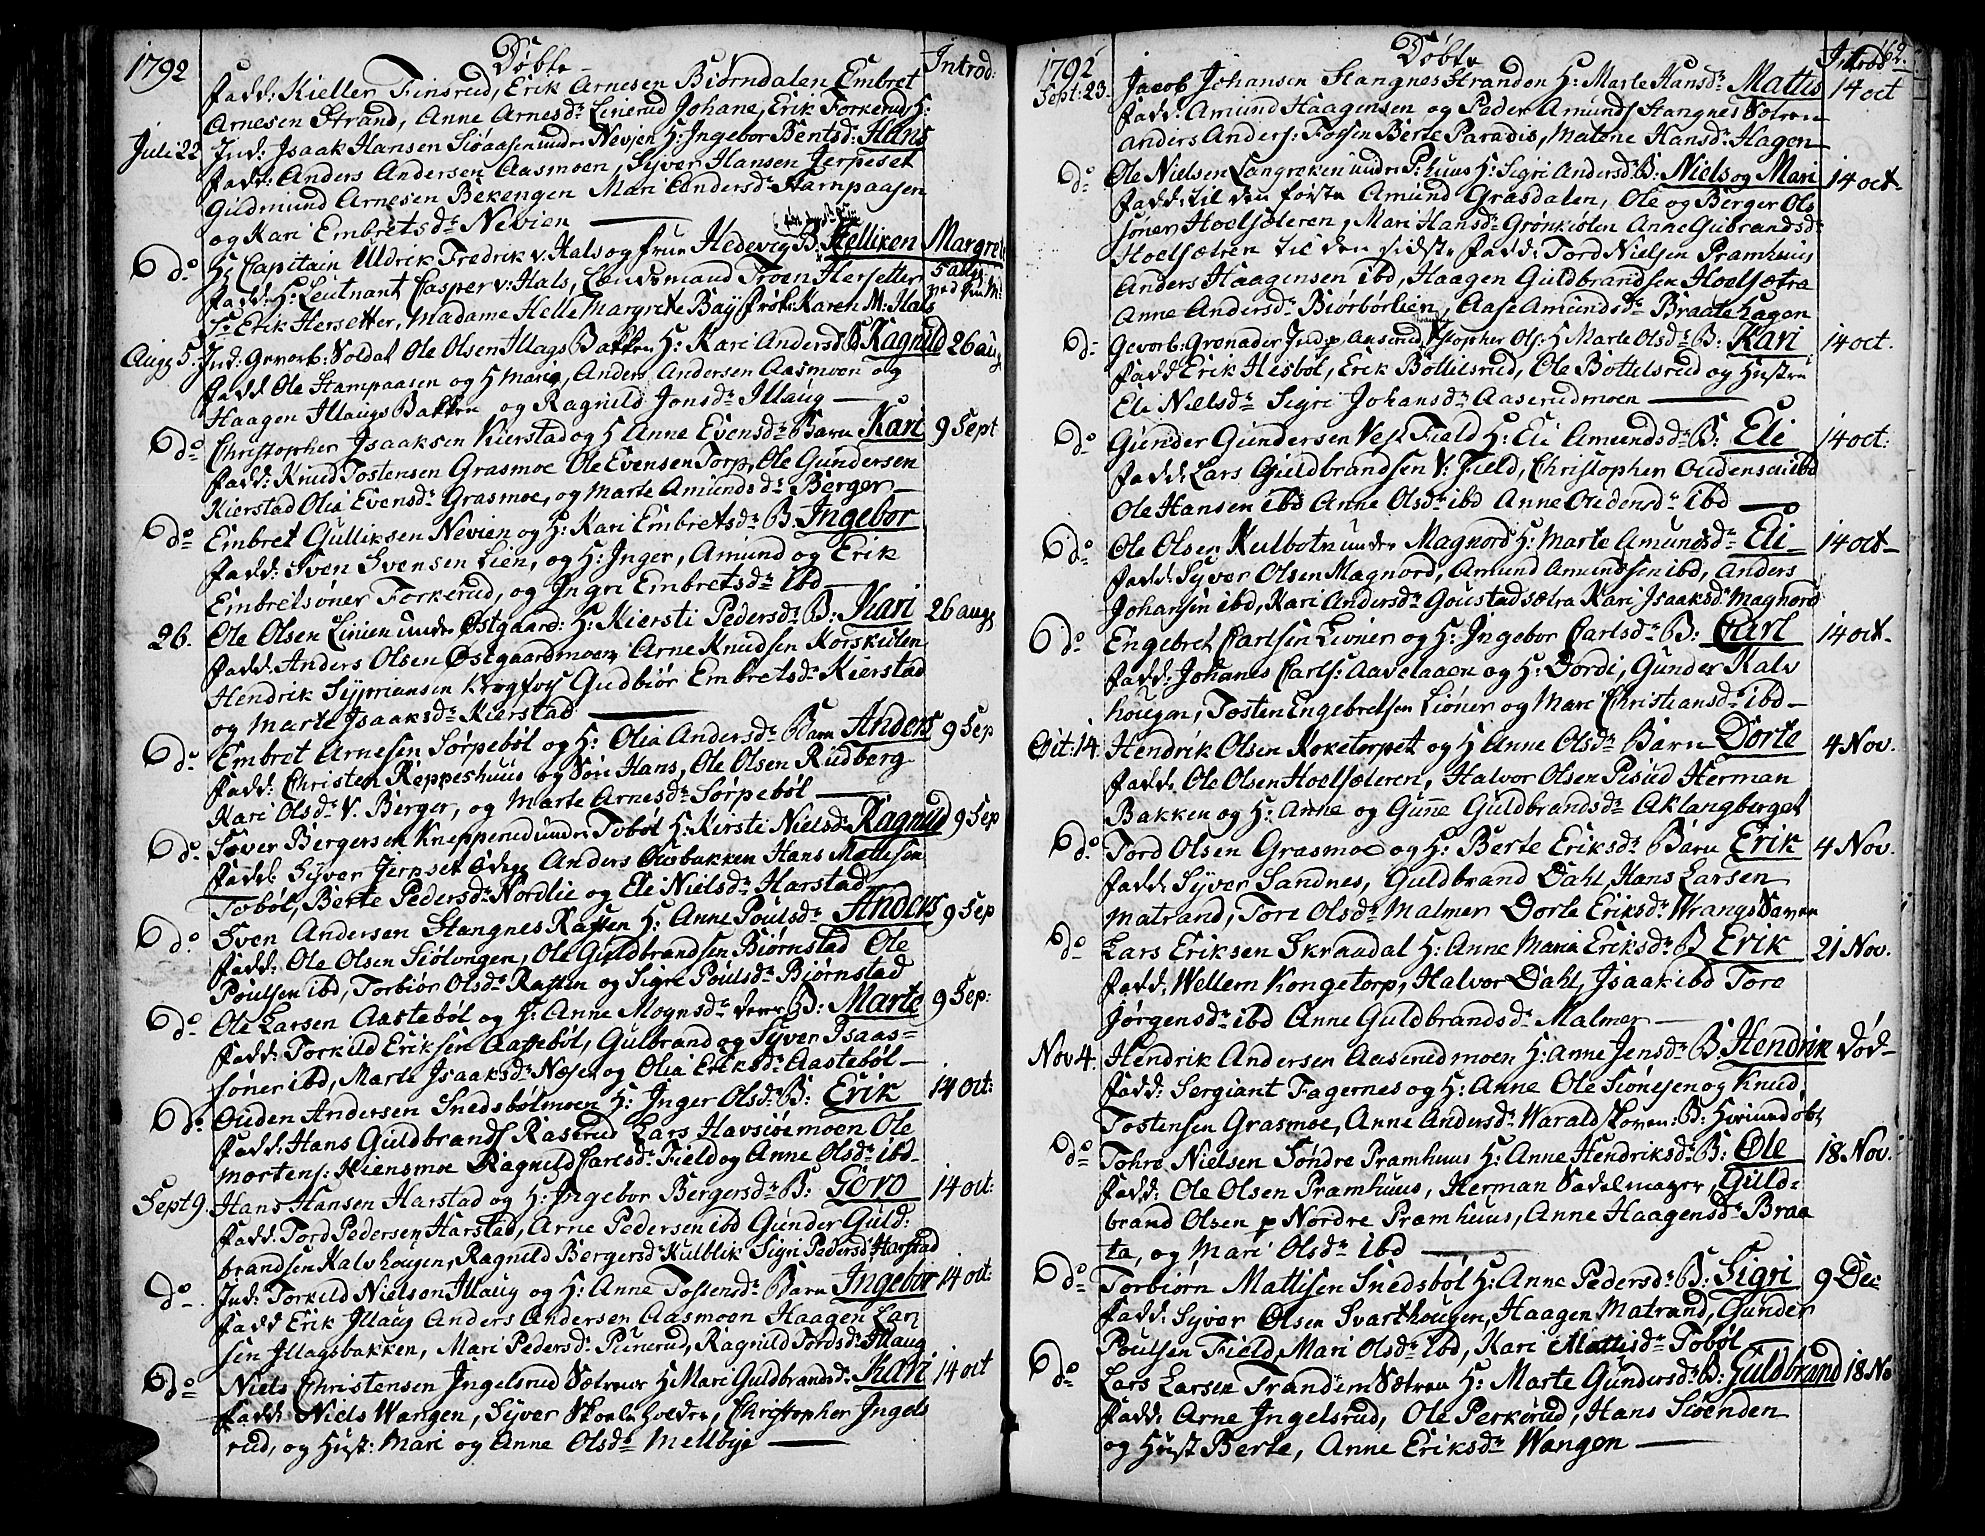 1792 Døbte Introd:
Fadd: Kieller Finsrud, Erik Arnesen Biørndalen Embret
Arnesen Strand, Anne Arnesdr Linerud Johane, Erik Forkerud H:
Juli 22. Ind: Isaak Hansen Siøaasen under Nevien H: Ingebor Bentsdr: Hans
Fadd: Anders Andersen Aasmoen, Syver Hansen Jerpeset
Gudmund Arnesen Bekengen Mari Andersdr Stampaasen
og Kari Embretsdr Nevien
do Hr Capitain Uldrik Fredrik v. Hals og frue Hedevig B. Hellken Margrete
Fadd: Hr Leutnant Casper v: Hals, Lendsmand Troen Hersetter 5 aug
Sr Erik Hersetter, Madame Helle Margrete Bay frøk: Karen M: Hals
Aug 5. Ind: Gevorb: Soldat Ole Olsen Illags Bakken H: Kari Andersdr B Ragnild 26 aug
Fadd Ole Stampaasen og H Mari, Anders Andersen Aasmoen og
Haagen Illaugs Bakken og Ragnild Jonsdr Illaug
do Christopher Isaaksen Kierstad og H Anne Evensdr Barn Kari 9 Sept
Fadd: Knud Tostensen Grasmoe Ole Evensen Torp, Ole Gundersen
Kierstad Olia Evensdr Grasmoe, og Marte Amundsdr Berger
do Embret Gulliksen Nevien og H: Kari Embretsdr B. Ingebor
Fadd: Sven Svensen Lien, og H: Inger, Amund og Erik
Embretsøner Forkerud, og Ingri Embretsdr ibd
26. Ole Olsen Linien under Østgaard: H: Kiersti Pedersdr B: Kari 26 aug
Fadd. Anders Olsen Østgaardmoen, Arne Knudsen Korskiølen
Hendrik Sypriansen Krogfos Gudbiør Embretsdr Kierstad
og Marte Isaaksdr Kierstad
do Embret Arnesen Sørpebøl og H: Olia Andersdr Barn Anders 9 Sep
Fadd: Christen Reppeshuus og Søn Hans, Ole Olsen Rudberg
Kari Olsdr V. Berger, og Marte Arnesdr Sørpebøl
do Syver Bergersen Knepperud under Tobøl H: Kirsti Nielsdr Ragnild 9 Sep
Fadd: Syver Jerpset Anders Ousbakken Hans Mattisen
Tobøl, Berte Pedersdr Nordlie og Eli Nielsdr Harstad
do Sven Andersen Stangnes Rasten H: Anne Poulsdr Anders 9 Sep
Fadd: Ole Olsen Siølvngen, Ole Guldbrandsen Biørnstad Ole
Poulsen ibd, Torbiør Olsdr Rasten og Sigri Poulsdr Biørnstad
do Ole Larsen Aastebøl og H: Anne Mognsdr B: Marte 9 Sep:
Fadd: Torkild Eriksen Aastebøl, Gulbrand og Syver Isaas=
søner ibd, Marte Isaaksdr Næsen og Olia Eriksdr Aastebøl
do Ouden Andersen Snedsbølmoen H: Inger Olsdr B: Erik 14 Oct:
Fadd: Hans Guldbrands Rasrud Lars Havsiøemoen Ole
Mortens: Kiensmoe Ragnild Carlsdr Field og Anne Olsdr ibd
Sept 9. Hans Hansen Harstad og H: Ingebor Bergersdr B: Goro 14 oct:
Fadd: Tord Pedersen Harstad, Arne Pedersen ibd Gunder Guld:
brandsen Kalvhougen, Ragnild Bergersdr Kulblik Sigri Pedersdr Harstad
do Ind: Torkild Nielsen Illaug og H: Anne Tostensdr Barn Ingebor 14 oct:
Fadd Erik Illaug Anders Andersen Aasmoen Haagen Lar
sen Illagsbakken, Mari Pedersdr Purerud, Ragnild Tordsdr Illaug
do Niels Christensen Ingelsrud Sætren H Mari Guldbrandsdr Kari 14 oct
Fadd: Niels Wangen, Syver Skoleholder, Christopher Ingels
rud, og Hust: Mari og Anne Olsdr Mellbye
1792 Døbte Introd 162.
Sept: 23. Jacob Johansen StangnesStranden H: Marte Hansdr Mattis 14 oct
Fadd: Amund Haagensen og Peder Amunds Stangnes Sætren
Anders Anders: Fosen Berte Paradis, Malene Hansdr Hagen
do Ole Nielsen Langreken under Pr: huus H: Sigri Andersdr B: Niels og Mari 14 oct
Fadd: til den første Amund Grasdalen, Ole og Berger Ole
søner Hoelsæteren, Mari Hansdr Grønkiøten Anne Gubrandsdr
Hoelsætren til den sidste Fadd: Tord Nielsen Pramhuus
Anders Haagensen ibd, Haagen Guldbrandsen Hoelsætra
Anne Andersdr Biørbørlien, Aase Amundsdr Braatehagen
do Gevorb: Gronader Ind: p Aaserud Kstopher Ols: H Marte Olsdr B: Kari 14 oct.
Fadd Erik Hesbøl, Erik Bottelsrud, Ole Bottelsrud og Hustru
Eli Nielsdr Sigri Johansdr Aaserudmoen
do Gunder Gundersen Vest Field H: Eli Amundsdr B: Eli 14 oct:
Fadd: Lars Guldbrandsen V: Field, Christopher Oudensen ibd
Ole Hansen ibd Anne Olsdr ibd Anne Oudensdr ibd
do Ole Olsen Kulboten under Magnord H: Marte Amundsdr Eli 14 oct
Fadd: Syver Olsen Magnord, Amund Amundsen ibd, Anders
Johansen ibd, Kari Andersdr Goustadsætra Kari Isaaksdr Magnord
do Engebret Carlsen Liøner og H: Ingebor Carlsdr B: Carl 14 oct
Fadd: Johanes Carls: Aavelaaen og H: Dordi, Gunder Kalv
hougen, Tosten Engebretsen Liøner og Mari Christiansdr ibd
Oct: 14. Hendrik Olsen Koketorpet og H Anne Olsdr Barn Dorte 4 Nov.
Fadd: Ole Olsen Hoelsæteren, Halvor Olsen Pisud Herman
Bakken og H: Anne og Gunne Guldbrandsdr Aklangberget
do Tord Olsen Grasmoe og H: Berte Eriksdr Barn Erik 4 Nov.
Fadd: Syver Sandnes, Guldbrand Dahl, Hans Larsen
Matrand, Tore Olsdr Malmer Dorte Eriksdr Wrangs Saugen
do Lars Eriksen Skraadal H: Anne Maria Eriksdr B Erik 21 Nov.
Fadd: Wellem Kongetorp, Halvor Dahl, Isaak ibd Tore
Jørgensdr ibd Anne Guldbrandsdr Malmer
Nov 4. Hendrik Andersen Aaserudmoen H: Anne Jensdr B. Hendrik Død
Fadd: Sergiant Fagernes og H: Anne Ole Siønesen og Knud
Tostensen Grasmoe, Anne Andersdr Waraldskoven: B: Hiemmedøbt
do Tohre Nielsen Søndre Pramhuus H: Anne Hendriksdr B: Ole 18 Nov.
Fadd: Ole Olsen Pramhuus, Herman Sadelmager, Guld=
brand Olsen p Nordre Pramhuus, Anne Haagensdr Braa
ta, og Mari Olsdr ibd
do Torbiørn Mattisen Snedsbøl H: Anne Pedersdr B: Sigri 9 Dec
Fadd: Syver Olsen Svarthougen, Haagen Matrand, Gunder
Poulsen Field, Mari Olsdr ibd, Kari Mattisdr Tobøl
do Lars Larsen Trandem Sætren H: Marte Gundersdr B: Guldbrand 18 No
Fadd: Arne Ingelsrud, Ole Perkørud, Hans Siøenden
og Hust Berte, Anne Eriksdr Wangen